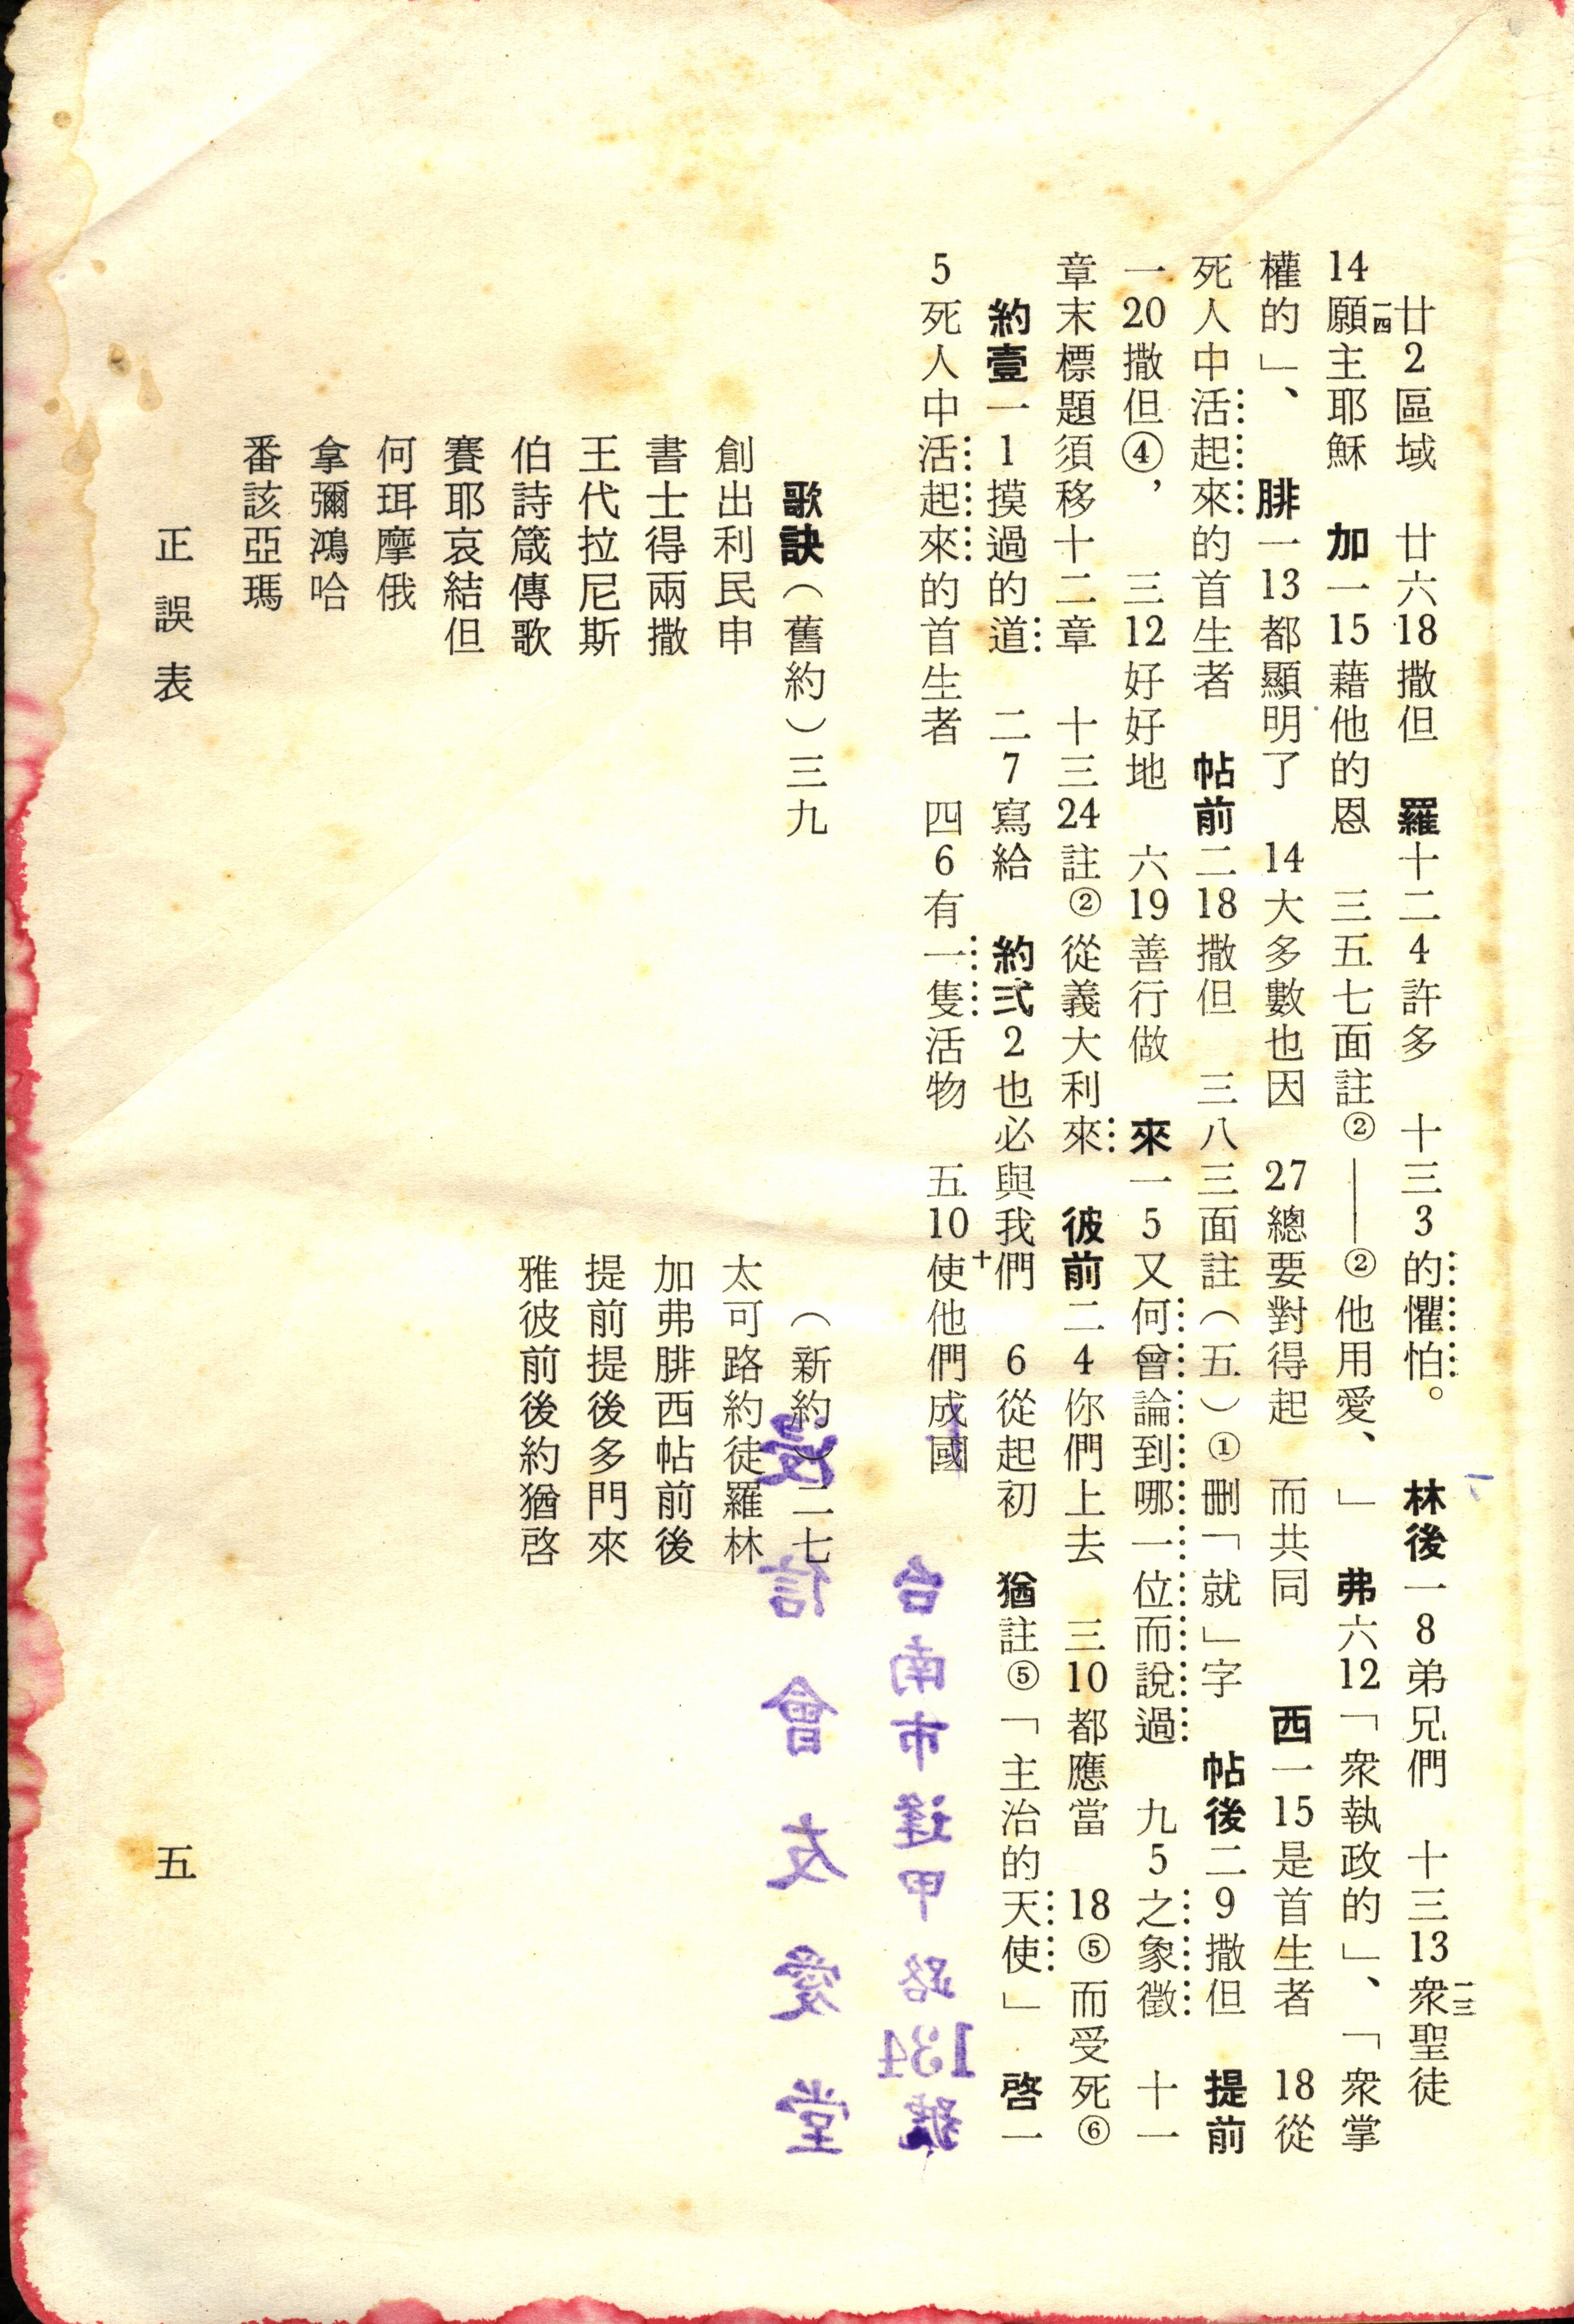 廿2區域　廿六18撒但　羅十二4許多　十三3的懼怕。　林後一8弟兄們　十三13衆聖徒
一三
14願主耶穌　加一15藉他的恩　三五七面註②——②他用愛、」　弗六12「衆執政的」、「衆掌
一四
權的」、　腓一13都顯明了　14大多數也因　27總要對得起　而共同　西一15是首生者　18從
死人中活起來的首生者　帖前二18撒但　三八三面註（五）①刪「就」字　帖後二9撒但　提前
一20撒但④，　三12好好地　六19善行做　來一5又何曾論到哪一位而說過　九5之象徵　十一
章末標題須移十二章　十三24註②從義大利來　彼前二4你們上去　三10都應當　18⑤而受死⑥
約壹一1摸過的道　二7寫給　約弍2也必與我們　6從起初　猶註⑤「主治的天使」　啓一
5死人中活起來的首生者　四6有一隻活物　五10使他們成國
十
歌訣（舊約）三九
創出利民申
書士得兩撒
王代拉尼斯
伯詩箴傳歌
賽耶哀結但
何珥摩俄
拿彌鴻哈
番該亞瑪
（新約）二七
太可路約徒羅林
加弗腓西帖前後
提前提後多門來
雅彼前後約猶啓
台南市逢甲路134號
浸信會友愛堂
正誤表
五